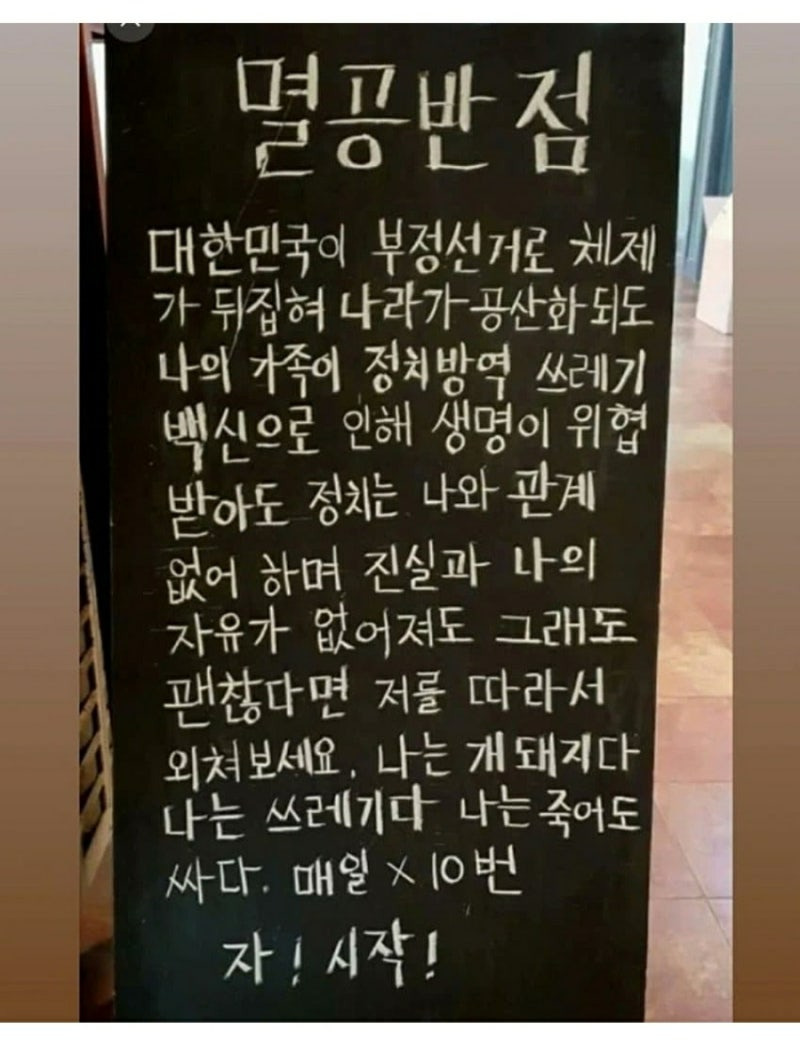 멸공반점
대한민국이 부정선거로 체제
가 뒤집혀 나라가 공산화 되도
나의 가족이 정치방역 쓰레기
백신으로 인해 생명이 위협
받아도 정치는 나와 관계
없어 하며 진실과 나의
자유가 없어져도 그래도
괜찮다면 저를 따라서
외쳐보세요. 나는 개돼지다
나는 쓰레기다 나는 죽어도
싸다. 매일 × 10번
자! 시작!